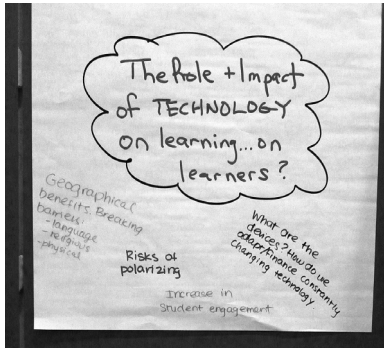 The Role + Impact
of TECHNOLOGY
on learning...on
learners?
Geographical
benefits. Breaking
barriers:
- language
- religious
- physical
Risks of
polarizing
Increase in
student engagement
What are the
devices? How do we
adapt/finance constantly
changing technology.